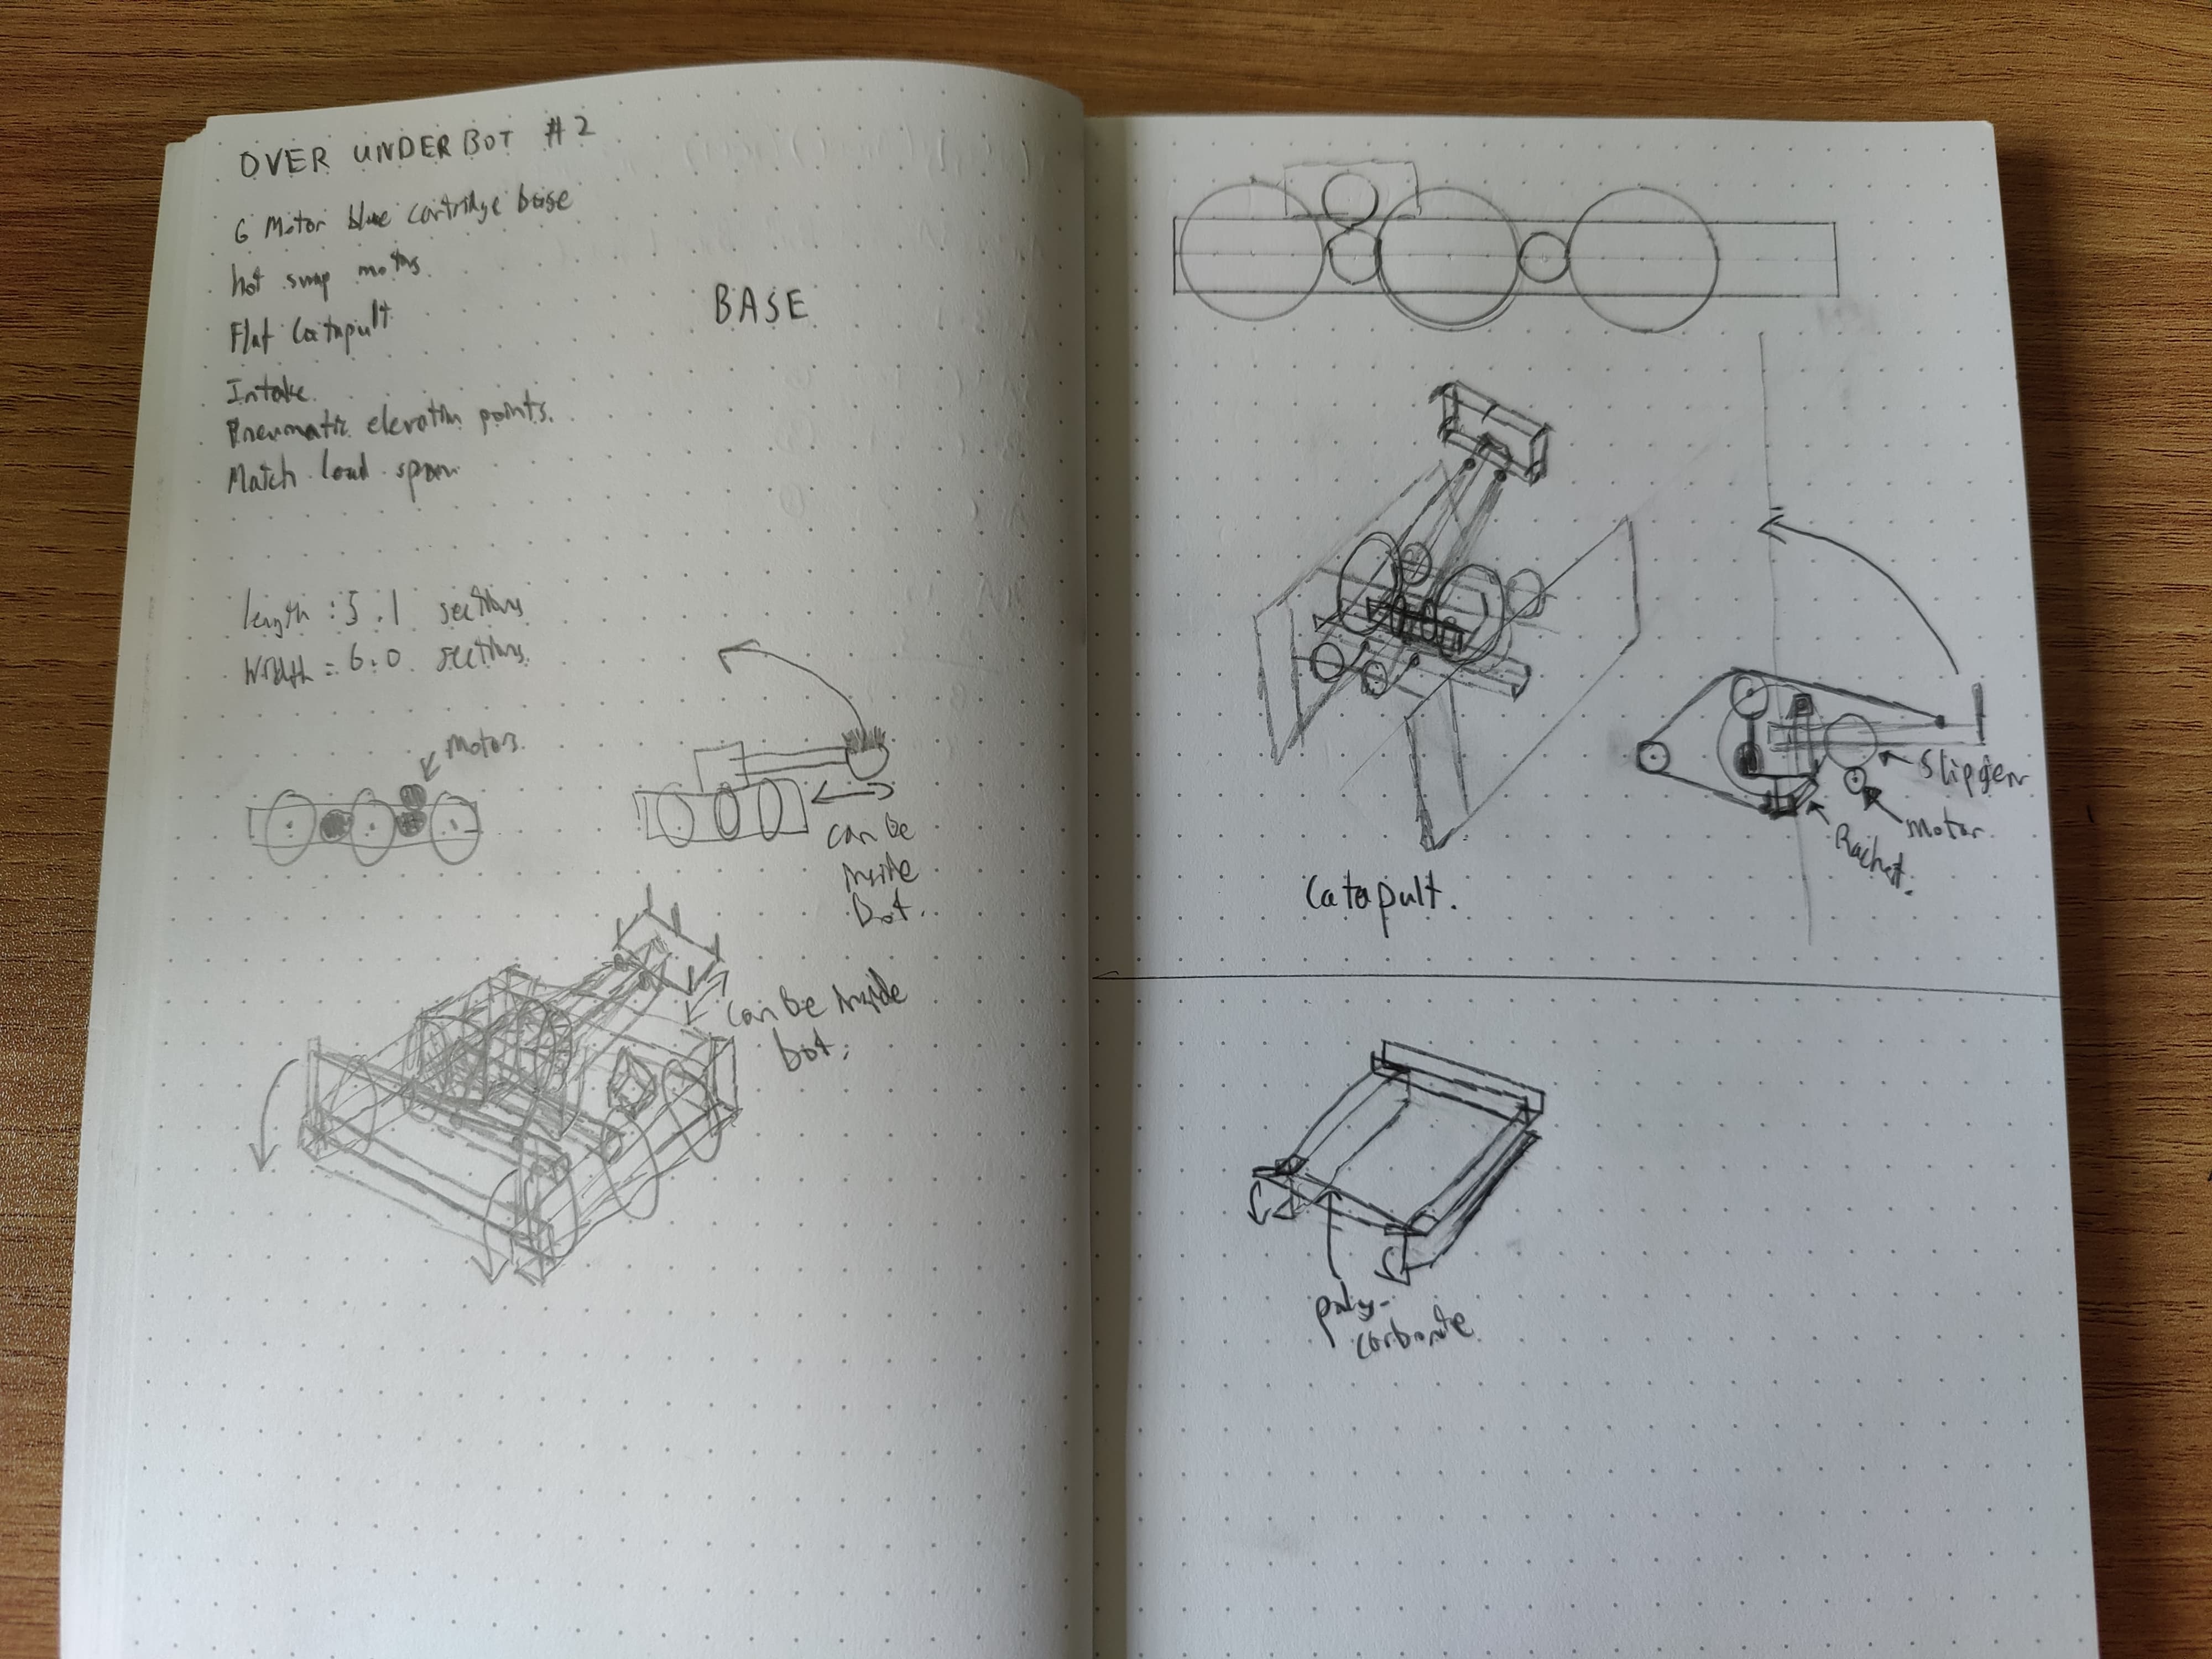 OVER UNDER BOT #2
6 Motor blue cartridge base
hot swap motors
Flat Catapult
Intake
Pneumatic elevation points.
Match load
length : 5.1 sections
Width = 6.0 sections
BASE
Motors
can be
inside
bot.
can be inside
bot.
Catapult.
Slipgear
Motor
Rachet.
poly-
carbonate